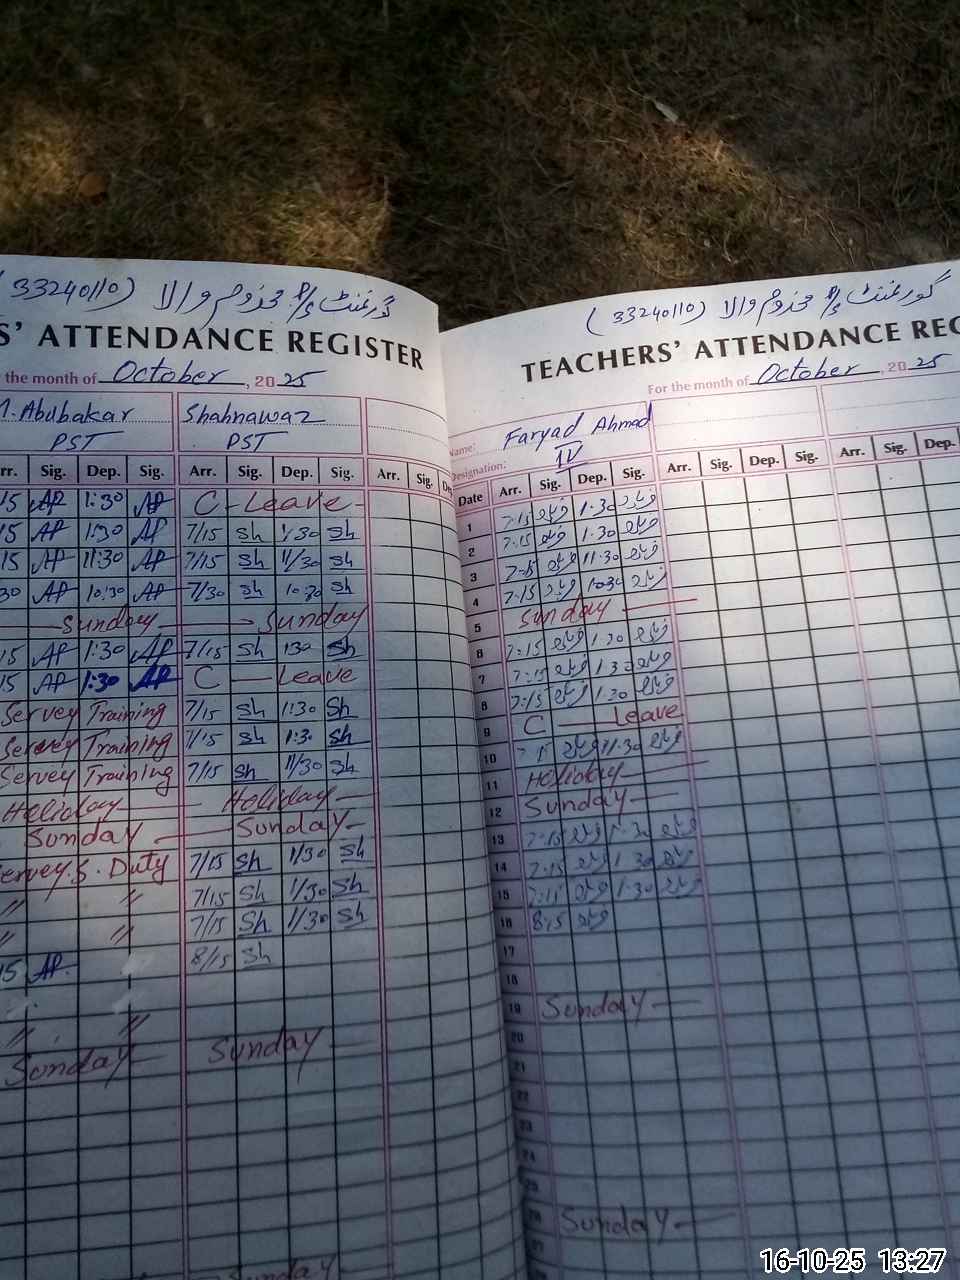 (33240110) گورنمنٹ P/S مخدوم والا
S' ATTENDANCE REGISTER
the month of October, 2025
M. Abubakar Shahnawaz
PST PST
rr. Sig. Dep. Sig. Arr. Sig. Dep. Sig. Arr. Sig. De
15 AP 1:30 AP C-Leave
15 AP 1:30 AP 7/15 Sh 1/30 Sh
15 AP 11:30 AP 7/15 Sh 11/30 Sh
30 AP 10:30 AP 7/30 Sh 10:30 Sh
Sunday Sunday
15 AP 1:30 AP 7/15 Sh 130 Sh
15 AP 1:30 AP C Leave
Servey Training 7/15 Sh 1:30 Sh
Servey Training 7/15 Sh 1:30 Sh
Servey Training 7/15 Sh 11/30 Sh
Holiday Holiday
Sunday Sunday
ervey. S. Duty 7/15 Sh 1/30 Sh
" " 7/15 Sh 1/30 Sh
" " 7/15 Sh 1/30 Sh
15 AP. 8/15 Sh
" "
Sunday Sunday
Sunday
(33240110) گورنمنٹ P/S مخدوم والا
TEACHERS' ATTENDANCE REG
For the month of October, 2025
Name: Faryad Ahmad
Designation: IV
Date Arr. Sig. Dep. Sig. Arr. Sig. Dep. Sig. Arr. Sig. Dep.
1 7:15 فریاد 1:30 فریاد
2 7:15 فریاد 1:30 فریاد
3 7:15 فریاد 11:30 فریاد
4 7:15 فریاد 10:30 فریاد
5 Sunday
6 7:15 فریاد 1:30 فریاد
7 7:15 فریاد 1:30 فریاد
8 7:15 فریاد 1:30 فریاد
9 C Leave
10 7:15 فریاد 11:30 فریاد
11 Holiday
12 Sunday
13 7:15 فریاد 1:30 فریاد
14 7:15 فریاد 1:30 فریاد
15 7:15 فریاد 1:30 فریاد
16 8:15 فریاد
17
18
19 Sunday
20
21
22
23
24
25
26 Sunday
27
16-10-25 13:27